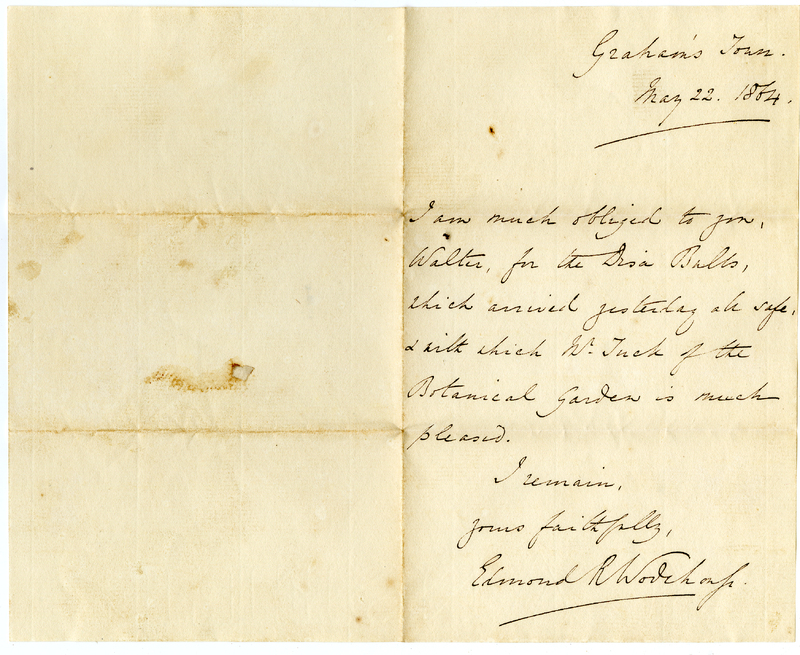 Graham's Town.
May 22. 1864.
I am much obliged to you,
Walter, for the Disa Bulbs,
which arrived yesterday all safe,
& with which Mr. Tuck of the
Botanical Garden is much
pleased.
I remain,
yours faithfully,
Edmond R Wodehouse.